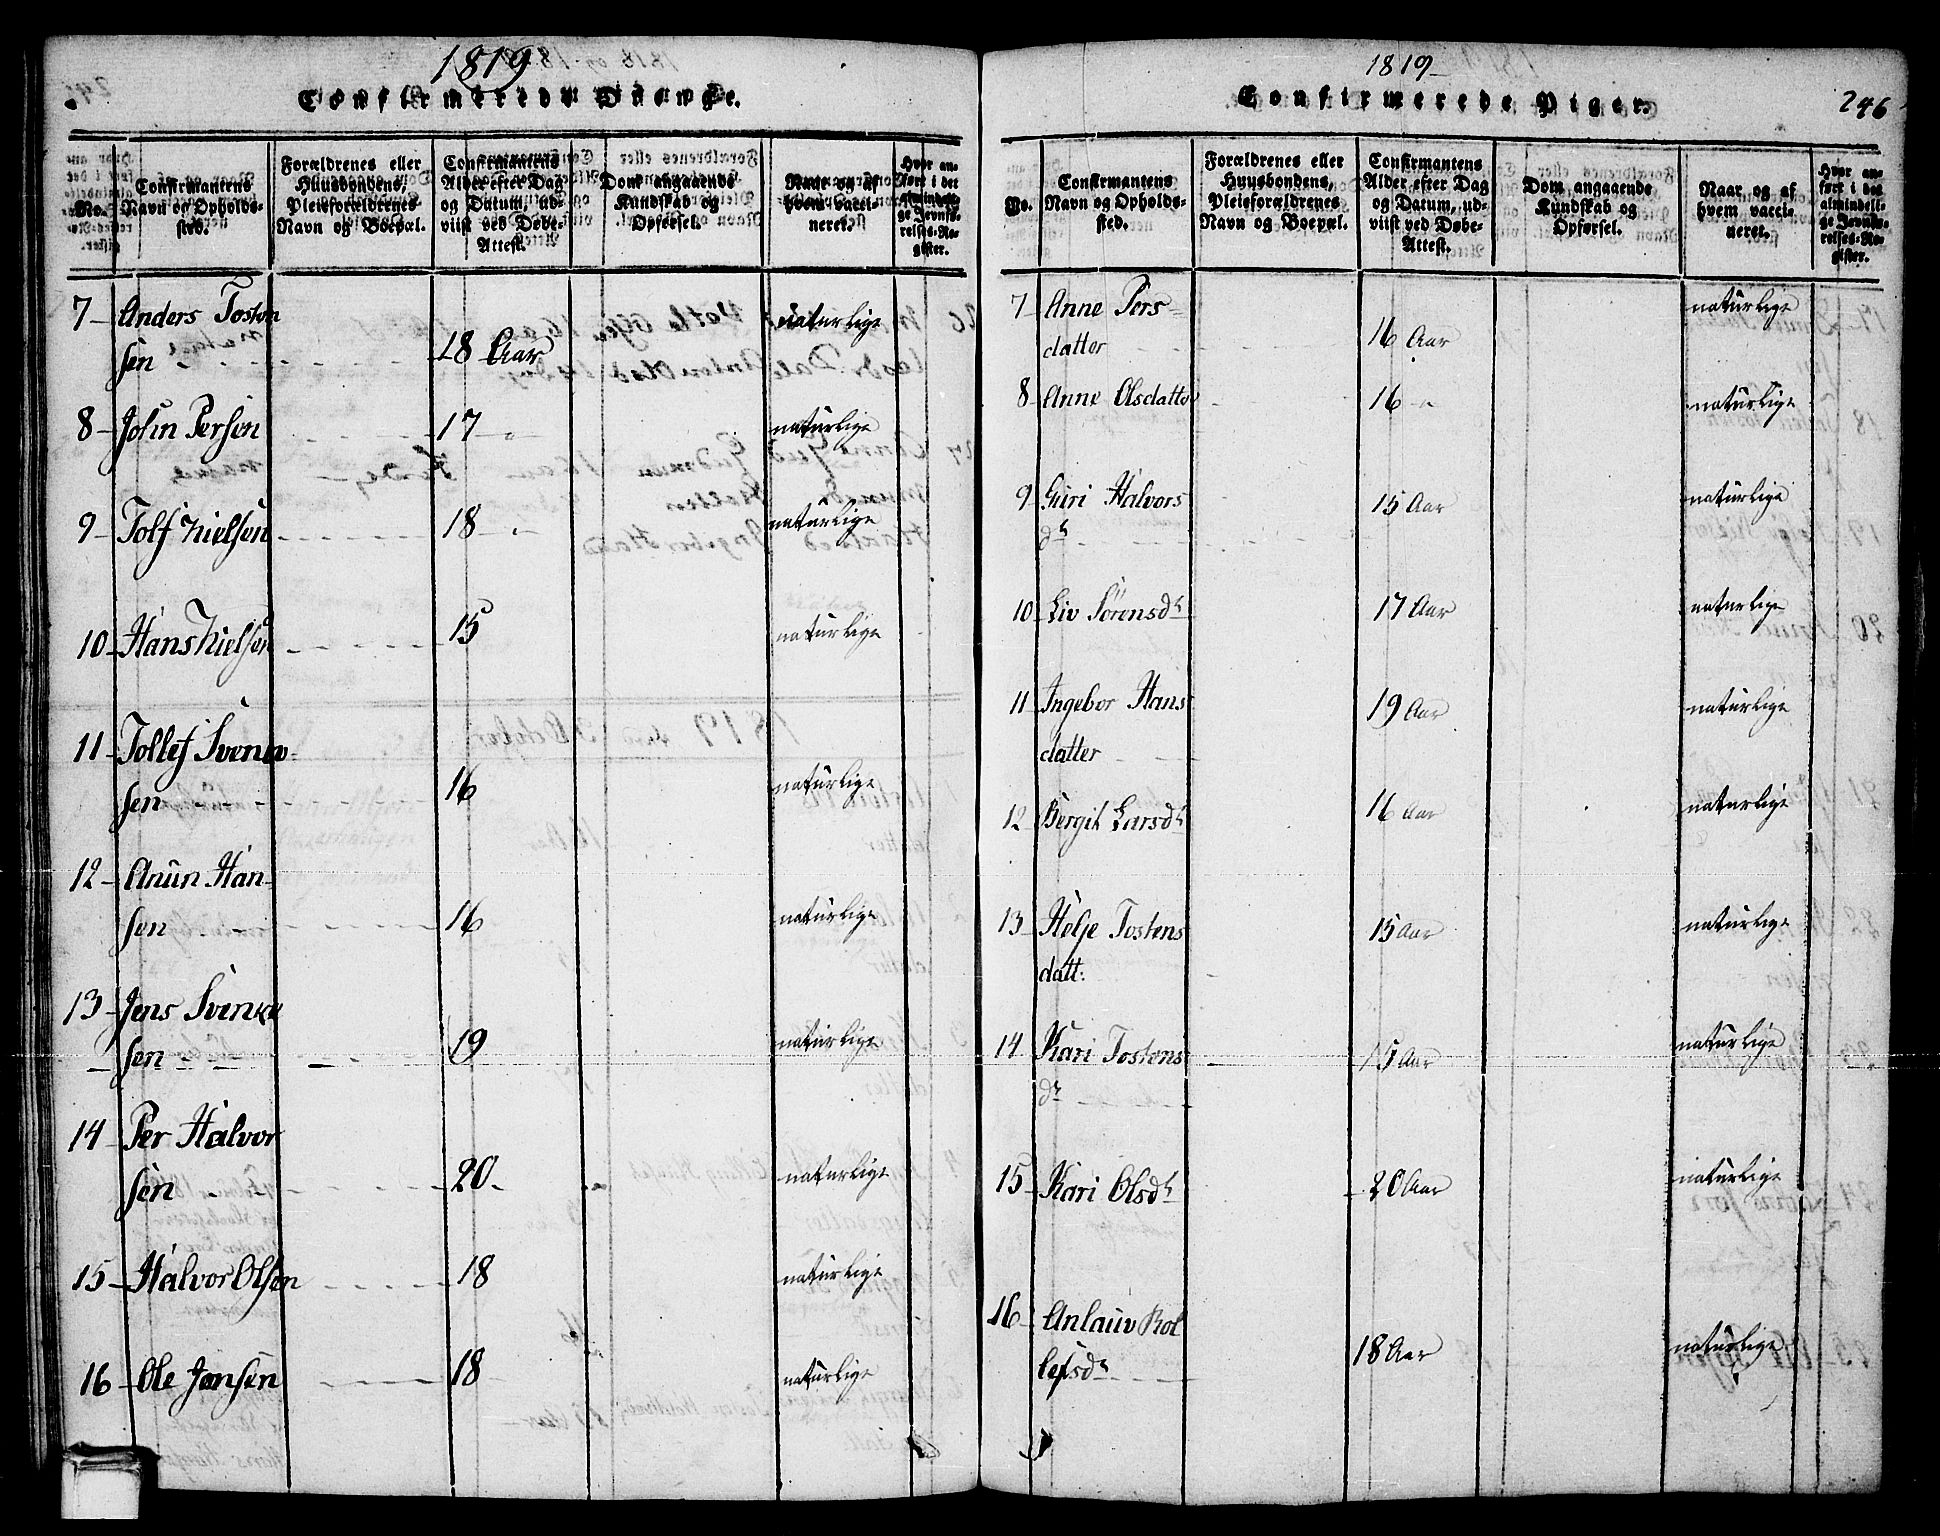 1819
Confirmerede Drenge.
No.
Confirmantens Navn og Opholds-sted.
Forældrenes eller Huusbondens, Pleieforældrenes Navn og Boepæl.
Confirmantens Alder efter Dag og Datum, ud-viist ved Døbe-Attest.
Dom angaaende Kundskab og Opførsel.
Naar og af hvem vacci-neret.
Hvor an-ført i det almindeli-ge Jevnfø-relses-Re-gister.
7 Anders Tosten
sen 18 Aar naturlige
8 John Persen 17 " naturlige
9 Tolf Nielsen 18 " naturlige
10 Hans Nielsen 15 naturlige
11 Tollef Svenke-
sen 16 naturlige
12 Anun Han-
sen 16 naturlige
13 Jens Svenke
sen 19 naturlige
14 Per Halvor
sen 20 naturlige
15 Halvor Olsen 18 naturlige
16 Ole Jansen 18 naturlige
1819
Confirmerede Piger.
246
No.
Confirmantens Navn og Opholds-sted.
Forældrenes eller Huusbondens, Pleieforældrenes Navn og Boepæl.
Confirmantens Alder efter Dag og Datum, ud-viist ved Døbe-Attest.
Dom angaaende Kundskab og Opførsel.
Naar og af hvem vacci-neret.
Hvor an-ført i det almindeli-ge Jevnfø-relses-Re-gister.
7 Anne Pers
datter 16 Aar naturlige
8 Anne Olsdatter 16 " naturlige
9 Guri Halvors
dr 15 Aar naturlige
10 Liv Sörensdr 17 Aar naturlige
11 Ingebor Hans
datter 19 Aar naturlige
12 Bergit Larsdr 16 Aar naturlige
13 Helje Tostens
datt: 15 Aar naturlige
14 Kari Tostens
dr 15 Aar naturlige
15 Kari Olsdr 20 Aar naturlige
16 Anlauv Rol
lefsdr 18 Aar naturlige